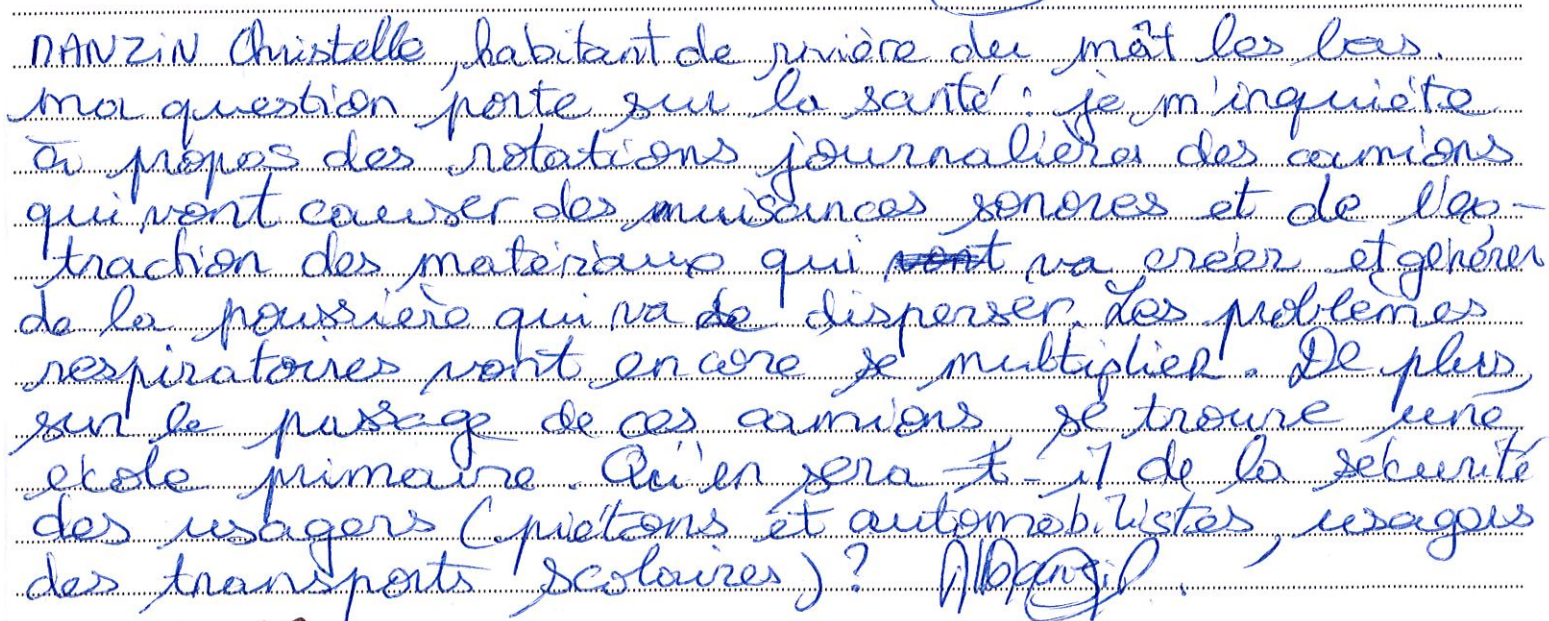 DANZIN Christelle, habitant de rivière du mât les bas.
ma question porte sur la santé : je m'inquiète
à propos des rotations journalières des camions
qui vont causer des nuisances sonores et de l'ex-
traction des matériaux qui va créer et générer
de la poussière qui va se disperser. Les problèmes
respiratoires vont encore se multiplier. De plus,
sur le passage de ces camions se trouve une
école primaire. Qu'en sera t-il de la sécurité
des usagers (piétons et automobilistes, usagers
des transports scolaires) ?